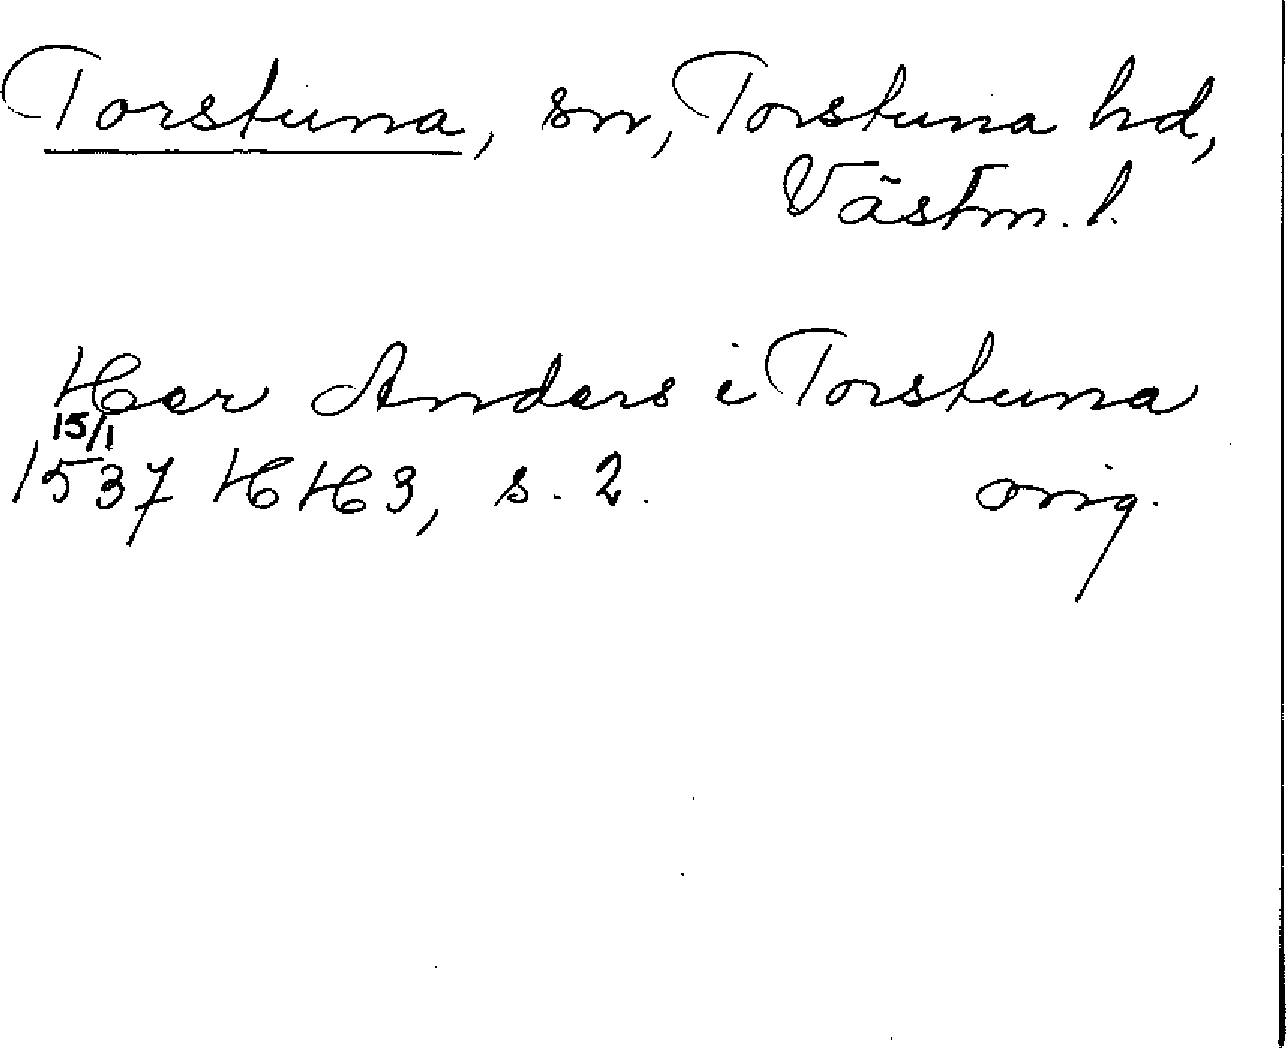 Torstuna, sn, Torstuna hd,
Västm. l.
Her Anders i Torstuna
15/1
1537 HH3, s. 2. orig.